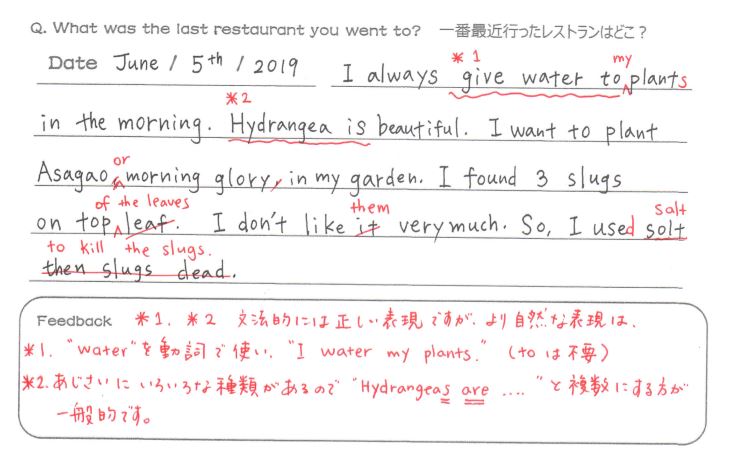 Q. What was the last restaurant you went to? 一番最近行ったレストランはどこ？
Date June / 5th / 2019
*1 my
I always give water to plants
*2
in the morning. Hydrangea is beautiful. I want to plant
or
Asagao, morning glory, in my garden. I found 3 slugs
of the leaves them salt
on top leaf. I don't like it very much. So, I used solt
to kill the slugs.
then slugs dead.
Feedback *1. *2 文法的には正しい表現ですが、より自然な表現は、
*1. "water"を動詞で使い、"I water my plants." (toは不要)
*2. あじさいにいろいろな種類があるので"Hydrangeas are ...."と複数にする方が
一般的です。